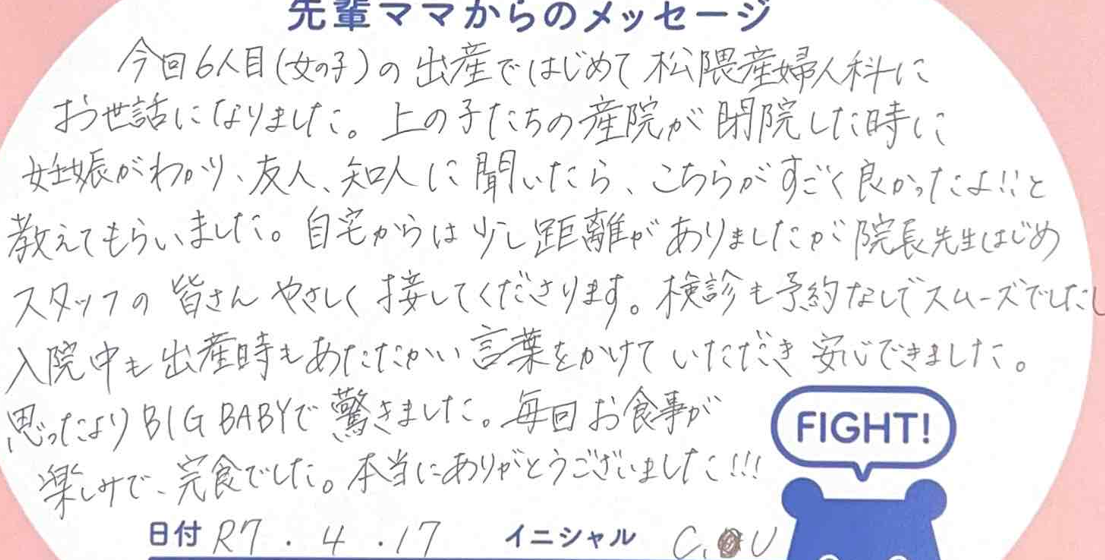 先輩ママからのメッセージ
今回6人目(女の子)の出産ではじめて松隈産婦人科に
お世話になりました。上の子たちの産院が閉院した時に
妊娠がわかり、友人、知人に聞いたら、こちらがすごく良かったよ!!と
教えてもらいました。自宅からは少し距離がありましたが院長先生はじめ
スタッフの皆さんやさしく接してくださります。検診も予約なしでスムーズでしたし
入院中も出産時もあたたかい言葉をかけていただき安心できました。
思ったよりBIG BABYで驚きました。毎回お食事が
楽しみで、完食でした。本当にありがとうございました!!!
FIGHT!
日付 R7.4.17 イニシャル C. U